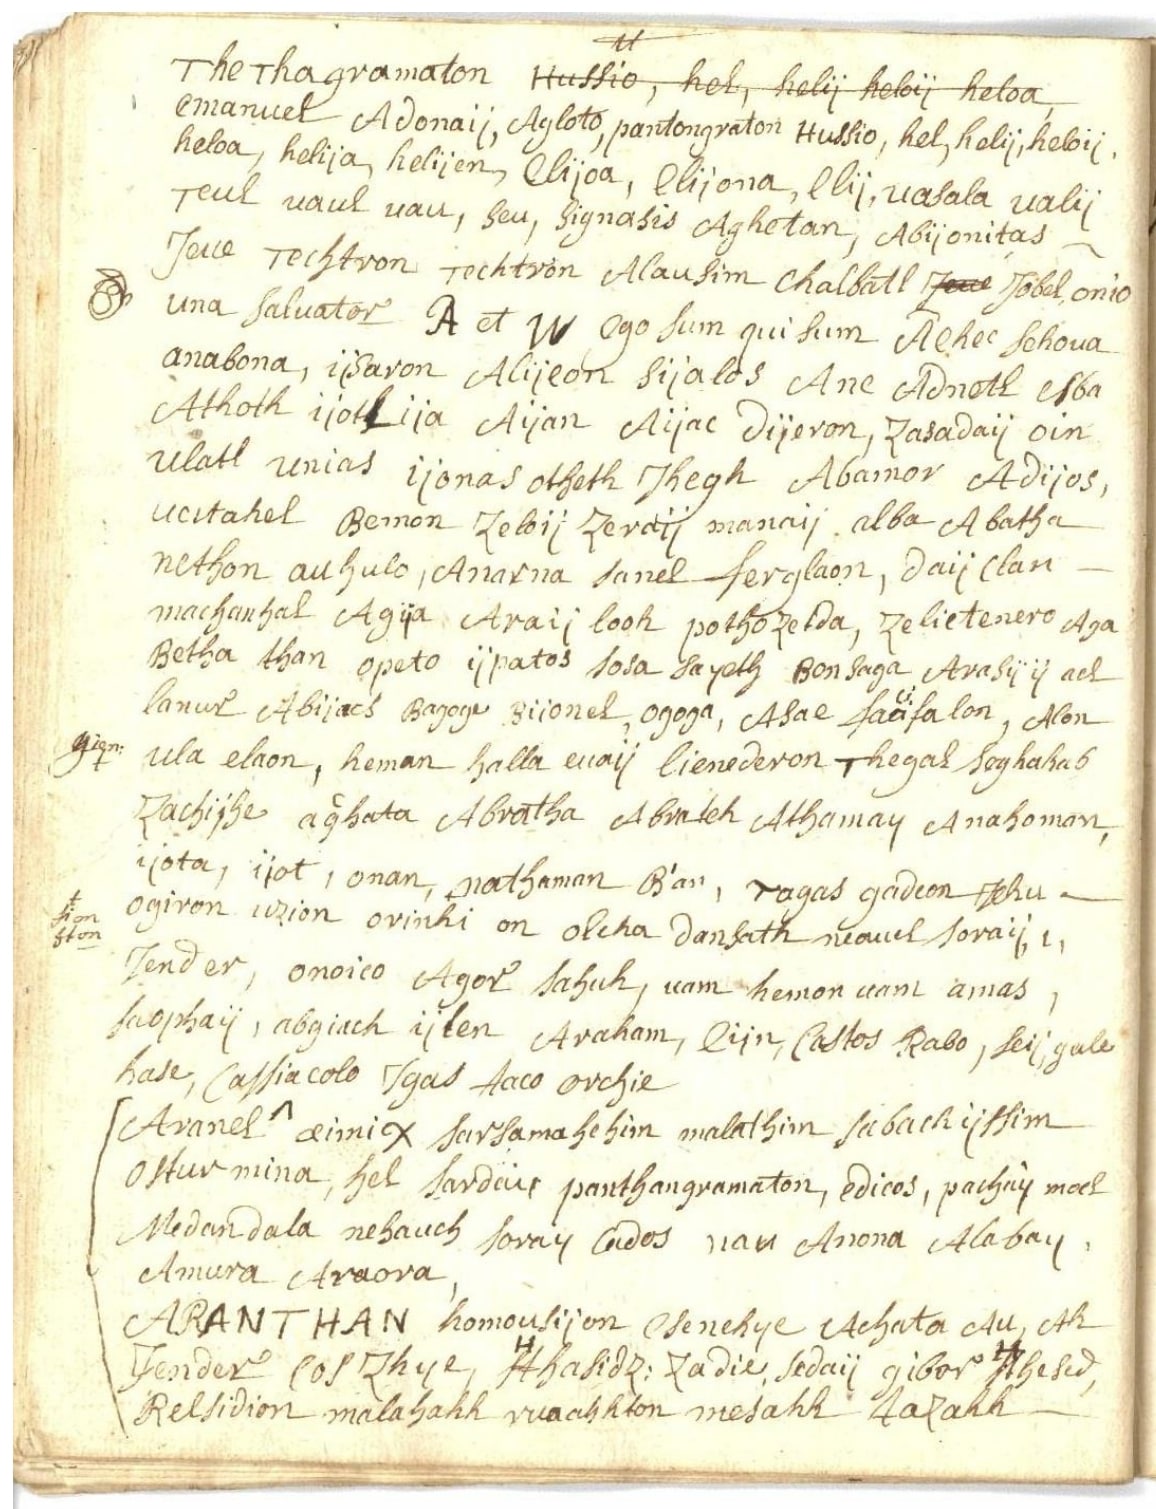 Thethagramaton Hussio, hel, helij heloij heloa,
Emanuel Adonaij, Agloto, pantongraton Hussio, hel, helij, heloij,
heloa, helija, helijen, Elijoa, Elijona, Elij, vasala valij
Teul uaul uau, seu, signasis Aghetan, Abijonitas
Jeue Techtron Techtron Alausim Chalbatl Jeue Jobel, onio
una saluator A et W Ego sum qui sum Aehec sehoua
anabona, ijsaron Alijeon sijalos Ane Adneth Esba
Athoth ijoth ija Aijan Aijac Dijeron, Zasadaij oin
ulatl unias ijonas otheth Jhegh Abamor Adijos,
uestahel Bemon Zeloij Zeraij manaij alba Abatha
nethon auhulo, Anarna sanel ferglaon, daij Clan
machanhal Agija Araij look pothozelda, Zelietenero Aga
Betha than opeto ijpatos sosa sayeth Bonsaga Arasijij ael
lanur Abijacs Bagoge Bijonel, ogoga, Asae falon, Alon
gien: ula elaon, heman halla euaij lienederon Thegal soghahab
Zachijhe aghata Abratha Abrateh Athamay Anahoman,
ijota, ijot, onan, nathaman B'an, ragas gadeon Jehu
sion ston ogiron uzion orinhi on olcha dansath neauel soraij, i,
Jender, onoico Agor sahuh, uam hemon uam amas,
saophaij, abgiach ijlen Araham, Eijn, Castos Rabo, seij, gale
hase, Cassiacolo Igas 4aco orchie
Aranel æimix sarsamahehim malathim sabachijssim
Osturmina, hel sardaij panthangramaton, Edicos, pachay mael
Medandala nehauch soray Cados uau Anona Alabay,
Amura Araora,
ARANTHAN homousijon Esenehye Achata Au, Ah
Jender Cos Zhye, Hhasidz: Zadie, sedaij gibor Hhesed,
Relsidion malahahh ruachhton mesahh 4azahh